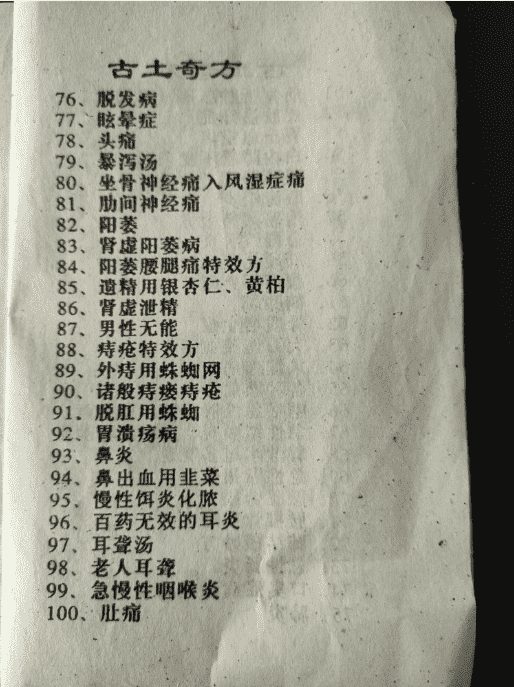 古土奇方
76、脱发病
77、眩晕症
78、头痛
79、暴泻汤
80、坐骨神经痛入风湿症痛
81、肋间神经痛
82、阳萎
83、肾虚阳萎病
84、阳萎腰腿痛特效方
85、遗精用银杏仁、黄柏
86、肾虚泄精
87、男性无能
88、痔疮特效方
89、外痔用蛛蜘网
90、诸般痔瘘痔疮
91、脱肛用蛛蜘
92、胃溃疡病
93、鼻炎
94、鼻出血用韭菜
95、慢性饵炎化脓
96、百药无效的耳炎
97、耳聋汤
98、老人耳聋
99、急慢性咽喉炎
100、肚痛